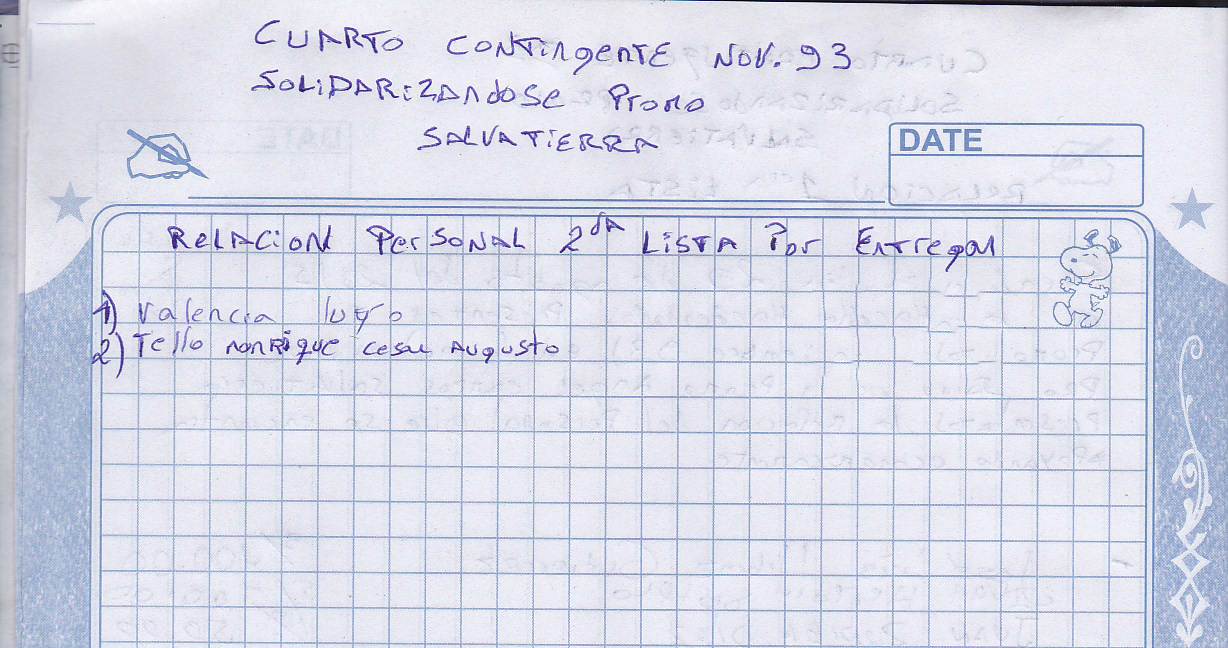 CUARTO CONTINGENTE NOV. 93
SOLIDARIZANDOSE PROMO
SALVATIERRA
DATE
RELACION PERSONAL 2da LISTA POR ENTREGAR
1) Valencia lugo
2) Tello manrique cesar Augusto